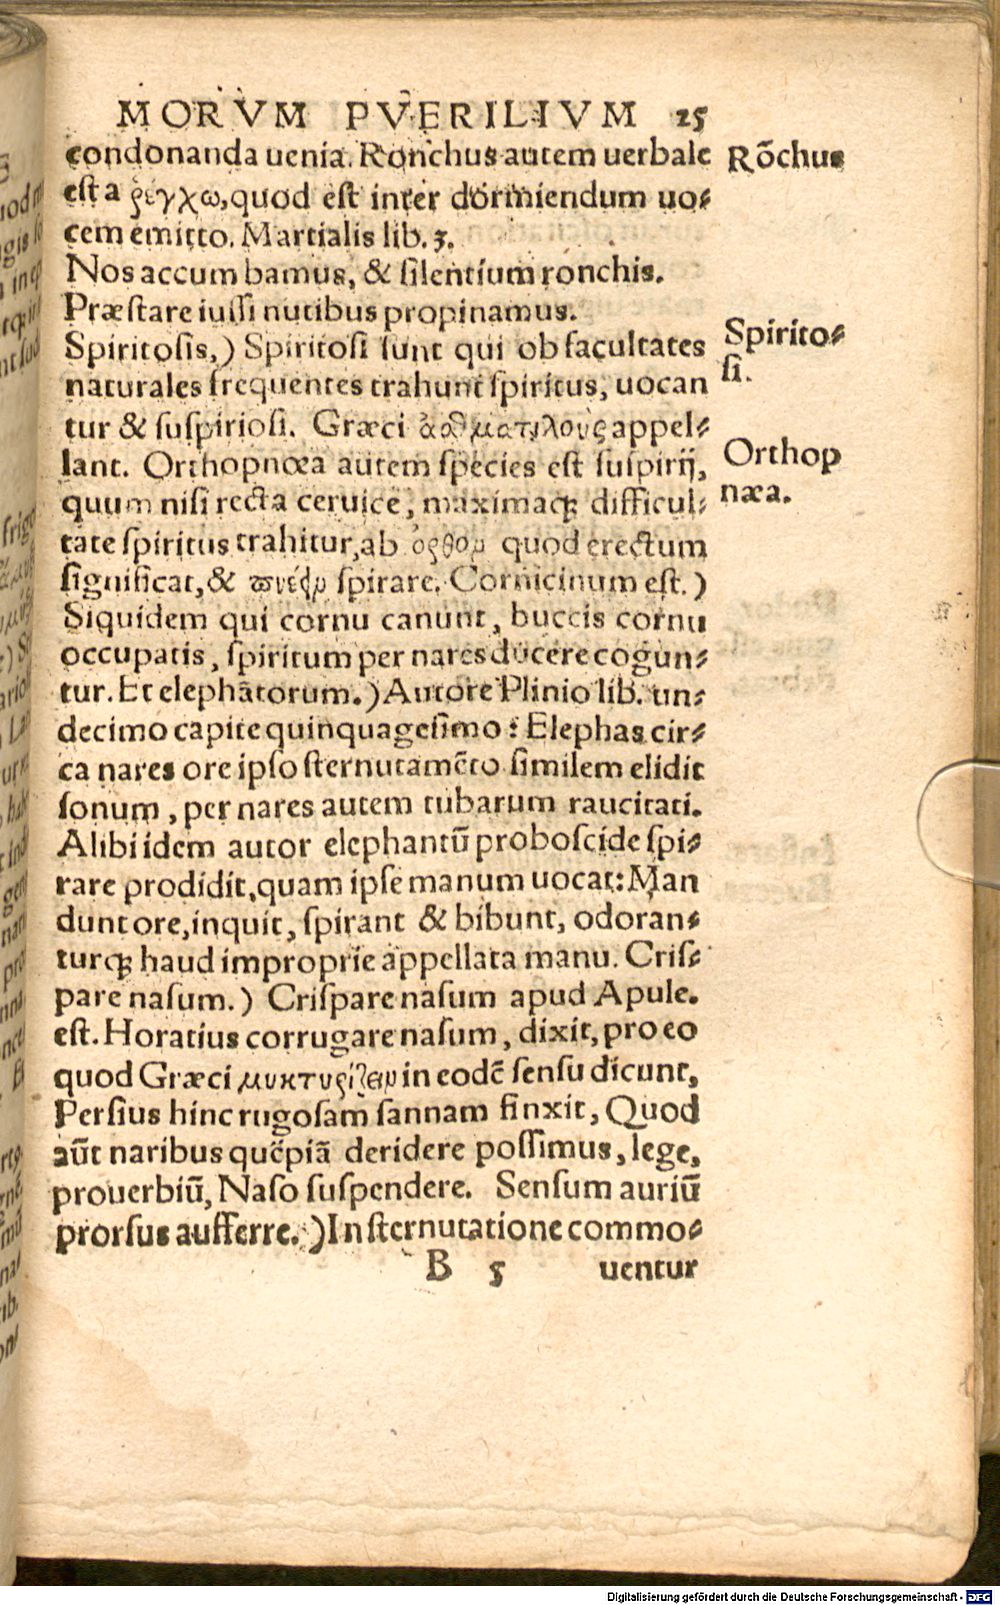 MORVM PVERILIVM 25
condonanda uenia. Ronchus autem uerbale
est a ῥέγχω, quod est inter dormiendum uo-
cem emitto. Martialis lib. 3.
Nos accum bamus, & silentium ronchis.
Præstare iussi nutibus propinamus.
Spiritosis,) Spiritosi sunt qui ob facultates
naturales frequentes trahunt spiritus, uocan
tur & suspiriosi. Græci ἀσθματικοὺς appel-
lant. Orthopnœa autem species est suspirij,
quum nisi recta ceruice, maximaq; difficul-
tate spiritus trahitur, ab ὀρθὸν quod erectum
significat, & πνέειν spirare. Cornicinum est.)
Siquidem qui cornu canunt, buccis cornu
occupatis, spiritum per nares ducere cogun-
tur. Et elephãtorum.) Autore Plinio lib. un-
decimo capite quinquagesimo: Elephas cir-
ca nares ore ipso sternutamẽto similem elidit
sonum, per nares autem tubarum raucitati.
Alibi idem autor elephantũ proboscide spi-
rare prodidit, quam ipse manum uocat: Man
dunt ore, inquit, spirant & bibunt, odoran-
turq; haud improprie appellata manu. Cris-
pare nasum.) Crispare nasum apud Apule.
est. Horatius corrugare nasum, dixit, pro eo
quod Græci μυκτηρίζειν in eodẽ sensu dicunt,
Persius hinc rugosam sannam finxit, Quod
aũt naribus quẽpiã deridere possimus, lege,
prouerbiũ, Naso suspendere. Sensum auriũ
prorsus aufferre.) In sternutatione commo-
B 5 uentur
Rõchus
Spirito-
si.
Orthop
næa.
Digitalisierung gefördert durch die Deutsche Forschungsgemeinschaft - DFG